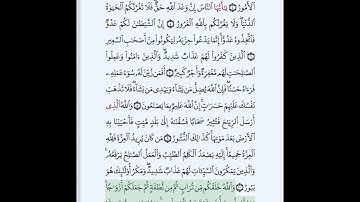 ٱلْأُمُورُ ۝٤ يَـٰٓأَيُّهَا ٱلنَّاسُ إِنَّ وَعْدَ ٱللَّهِ حَقٌّ ۖ فَلَا تَغُرَّنَّكُمُ ٱلْحَيَوٰةُ
ٱلدُّنْيَا ۖ وَلَا يَغُرَّنَّكُم بِٱللَّهِ ٱلْغَرُورُ ۝٥ إِنَّ ٱلشَّيْطَـٰنَ لَكُمْ عَدُوٌّ
فَٱتَّخِذُوهُ عَدُوًّا ۚ إِنَّمَا يَدْعُوا۟ حِزْبَهُۥ لِيَكُونُوا۟ مِنْ أَصْحَـٰبِ ٱلسَّعِيرِ
۝٦ ٱلَّذِينَ كَفَرُوا۟ لَهُمْ عَذَابٌ شَدِيدٌ ۖ وَٱلَّذِينَ ءَامَنُوا۟ وَعَمِلُوا۟
ٱلصَّـٰلِحَـٰتِ لَهُم مَّغْفِرَةٌ وَأَجْرٌ كَبِيرٌ ۝٧ أَفَمَن زُيِّنَ لَهُۥ سُوٓءُ عَمَلِهِۦ
فَرَءَاهُ حَسَنًا ۖ فَإِنَّ ٱللَّهَ يُضِلُّ مَن يَشَآءُ وَيَهْدِى مَن يَشَآءُ ۖ فَلَا تَذْهَبْ
نَفْسُكَ عَلَيْهِمْ حَسَرَٰتٍ ۚ إِنَّ ٱللَّهَ عَلِيمٌۢ بِمَا يَصْنَعُونَ ۝٨ وَٱللَّهُ ٱلَّذِىٓ
أَرْسَلَ ٱلرِّيَـٰحَ فَتُثِيرُ سَحَابًا فَسُقْنَـٰهُ إِلَىٰ بَلَدٍ مَّيِّتٍ فَأَحْيَيْنَا بِهِ
ٱلْأَرْضَ بَعْدَ مَوْتِهَا ۚ كَذَٰلِكَ ٱلنُّشُورُ ۝٩ مَن كَانَ يُرِيدُ ٱلْعِزَّةَ فَلِلَّهِ
ٱلْعِزَّةُ جَمِيعًا ۚ إِلَيْهِ يَصْعَدُ ٱلْكَلِمُ ٱلطَّيِّبُ وَٱلْعَمَلُ ٱلصَّـٰلِحُ يَرْفَعُهُۥ ۚ
وَٱلَّذِينَ يَمْكُرُونَ ٱلسَّيِّـَٔاتِ لَهُمْ عَذَابٌ شَدِيدٌ ۖ وَمَكْرُ أُو۟لَـٰٓئِكَ هُوَ
يَبُورُ ۝١٠ وَٱللَّهُ خَلَقَكُم مِّن تُرَابٍ ثُمَّ مِن نُّطْفَةٍ ثُمَّ جَعَلَكُمْ أَزْوَٰجًا ۚ